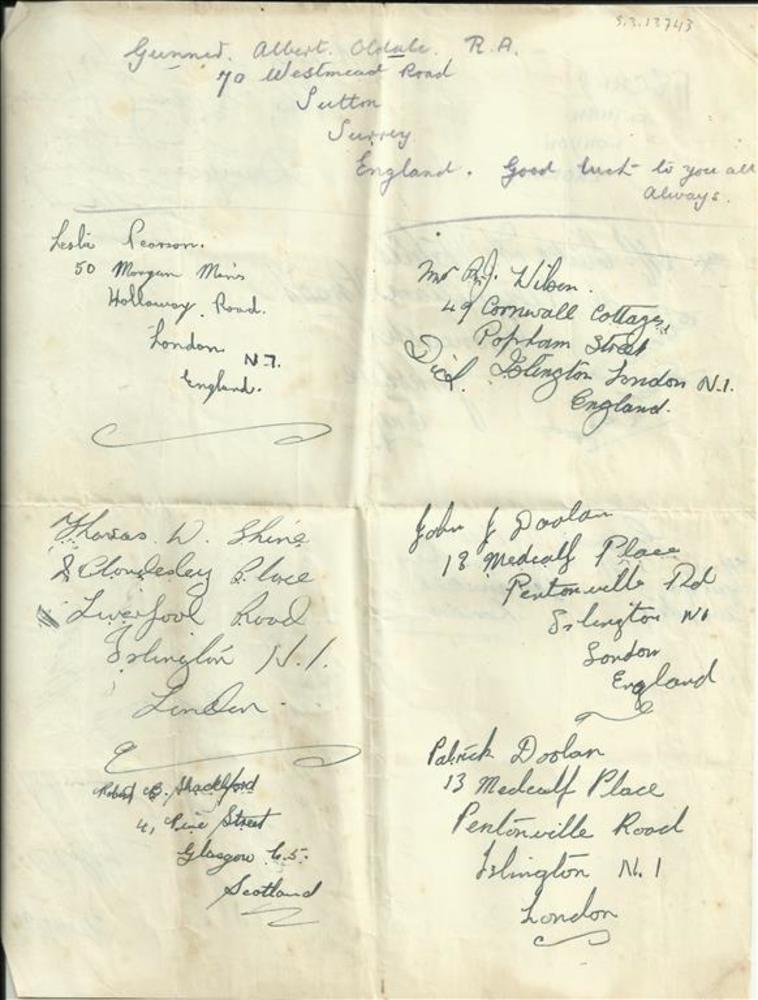 S.3.13743
Gunner. Albert. Oldale. R.A.
70 Westmead Road
Sutton
Surrey
England. Good luck to you all
Always.
Leslie Pearson.
50 Morgan Mans
Holloway. Road.
London N.7.
England.
Mr R.J. Wilson.
49 Cornwall Cottages,
Popham Street
Dick. Islington London N.1.
England.
Thomas. W. Shine
2 Cloudesley Place
Liverpool Road
Islington N.1.
London.
Robert B. Shackleford
41, Pine Street
Glasgow C.5.
Scotland
John J Doolan
18 Medcalf Place
Pentonville Rd
Islington N1
London
England
Patrick Doolan
13 Medcalf Place
Pentonville Road
Islington N.1
London